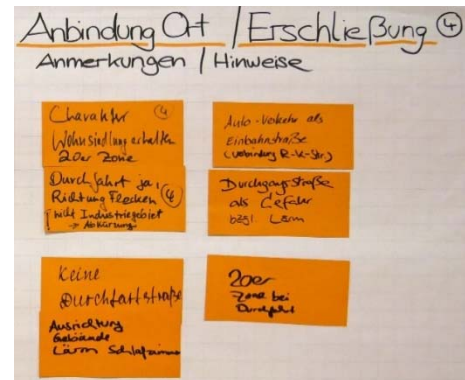 Anbindung Ort / Erschließung ④
Anmerkungen / Hinweise
Charakter ④
Wohnsiedlung erhalten
20er Zone
Durchfahrt ja,
Richtung Flecken ④
nicht Industriegebiet
→ Abkürzung
Keine
Durchfartstraße
Ausrichtung
Gebäude
Lärm Schlafzimmer
Auto-Verkehr als
Einbahnstraße
(Verbindung R.-K.-Str.)
Durchgangsstraße
als Gefahr
bzgl. Lärm
20er
Zone bei
Durchfahrt